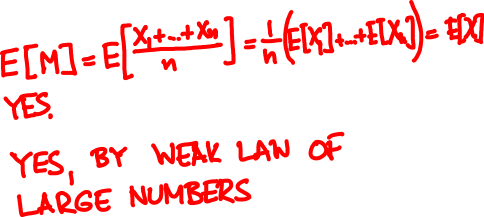 E[M] = E[(X₁+...+Xₙ)/n] = 1/n (E[X₁]+...+E[Xₙ]) = E[X]
YES.
YES, BY WEAK LAW OF
LARGE NUMBERS